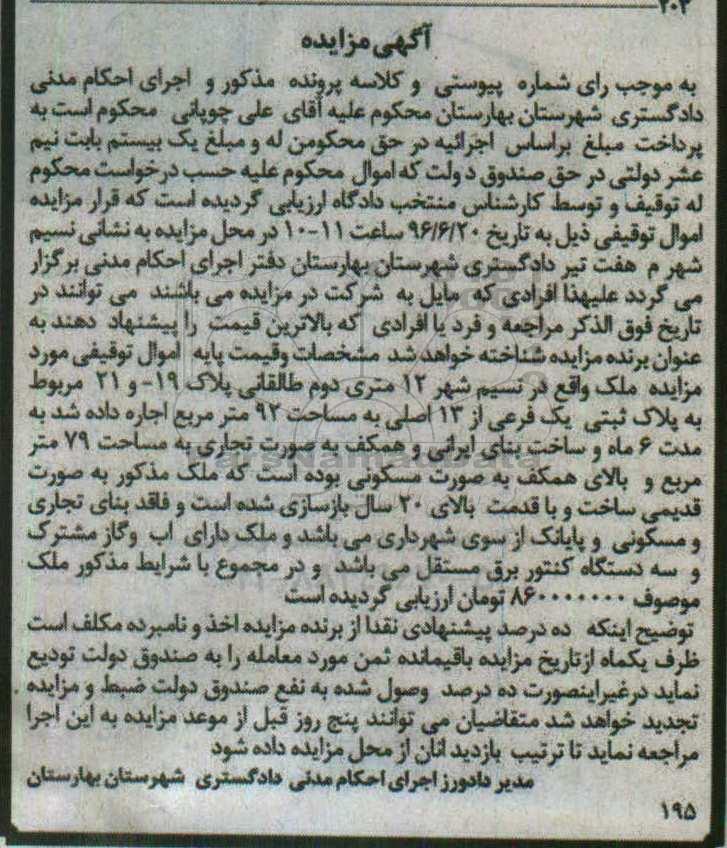 ۲۰۲
آگهی مزایده
به موجب رای شماره پیوستی و کلاسه پرونده مذکور و اجرای احکام مدنی
دادگستری شهرستان بهارستان محکوم علیه آقای علی چوپانی محکوم است به
پرداخت مبلغ براساس اجرائیه در حق محکومن له و مبلغ یک بیستم بابت نیم
عشر دولتی در حق صندوق دولت که اموال محکوم علیه حسب درخواست محکوم
له توقیف و توسط کارشناس منتخب دادگاه ارزیابی گردیده است که قرار مزایده
اموال توقیفی ذیل به تاریخ ۹۶/۶/۲۰ ساعت ۱۱-۱۰ در محل مزایده به نشانی نسیم
شهر م هفت تیر دادگستری شهرستان بهارستان دفتر اجرای احکام مدنی برگزار
می گردد علیهذا افرادی که مایل به شرکت در مزایده می باشند می توانند در
تاریخ فوق الذکر مراجعه و فرد یا افرادی که بالاترین قیمت را پیشنهاد دهند به
عنوان برنده مزایده شناخته خواهد شد مشخصات وقیمت پایه اموال توقیفی مورد
مزایده ملک واقع در نسیم شهر ۱۲ متری دوم طالقانی پلاک ۱۹- و ۲۱ مربوط
به پلاک ثبتی یک فرعی از ۱۳ اصلی به مساحت ۹۲ متر مربع اجاره داده شد به
مدت ۶ ماه و ساخت بنای ایرانی و همکف به صورت تجاری به مساحت ۷۹ متر
مربع و بالای همکف به صورت مسکونی بوده است که ملک مذکور به صورت
قدیمی ساخت و با قدمت بالای ۲۰ سال بازسازی شده است و فاقد بنای تجاری
و مسکونی و پایانک از سوی شهرداری می باشد و ملک دارای اب وگاز مشترک
و سه دستگاه کنتور برق مستقل می باشد و در مجموع با شرایط مذکور ملک
موصوف ۸۶۰۰۰۰۰۰۰۰ تومان ارزیابی گردیده است
توضیح اینکه ده درصد پیشنهادی نقدا از برنده مزایده اخذ و نامبرده مکلف است
ظرف یکماه ازتاریخ مزایده باقیمانده ثمن مورد معامله را به صندوق دولت تودیع
نماید درغیراینصورت ده درصد وصول شده به نفع صندوق دولت ضبط و مزایده
تجدید خواهد شد متقاضیان می توانند پنج روز قبل از موعد مزایده به این اجرا
مراجعه نماید تا ترتیب بازدید انان از محل مزایده داده شود
مدیر دادورز اجرای احکام مدنی دادگستری شهرستان بهارستان
۱۹۵